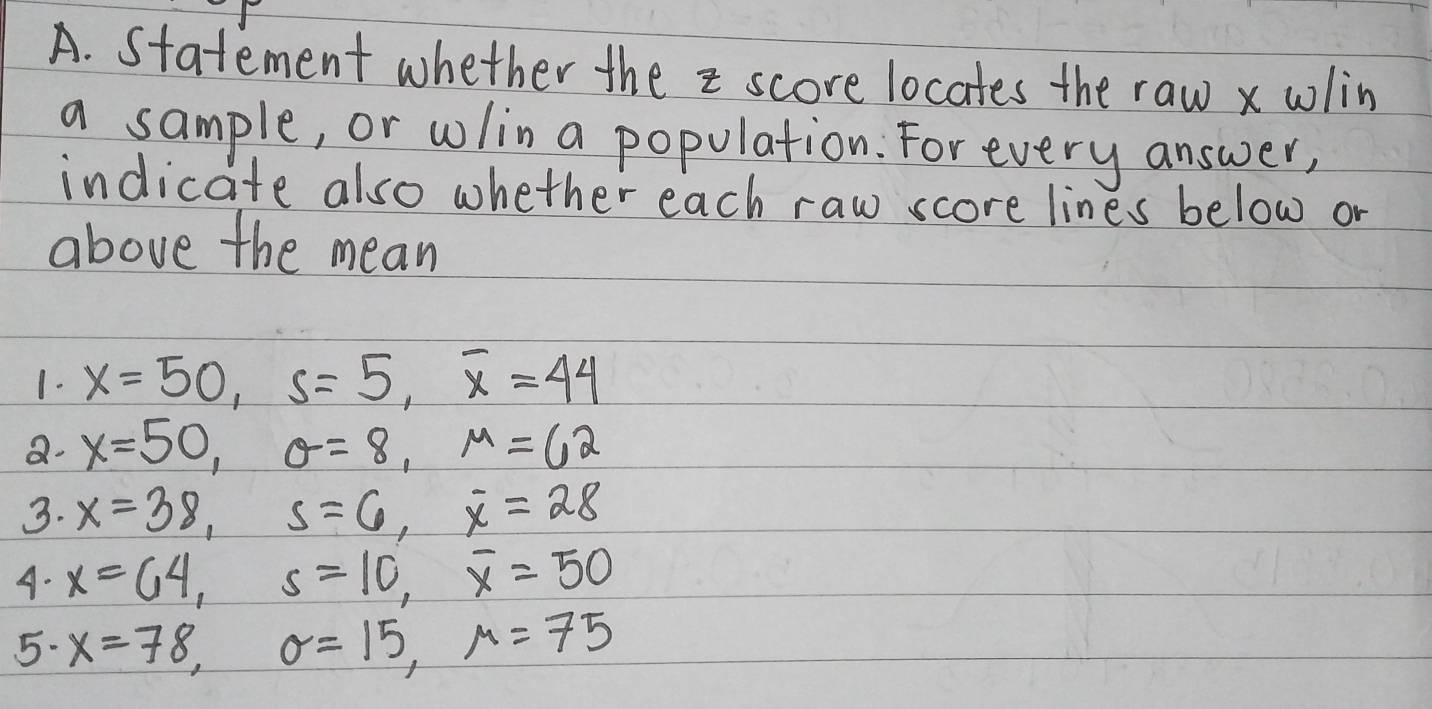 A. Statement whether the z score locates the raw x w/in
a sample, or w/in a population. For every answer,
indicate also whether each raw score lines below or
above the mean
1. x = 50, s = 5, x̄ = 44
2. x = 50, σ = 8, μ = 62
3. x = 38, s = 6, x̄ = 28
4. x = 64, s = 10, x̄ = 50
5. x = 78, σ = 15, μ = 75